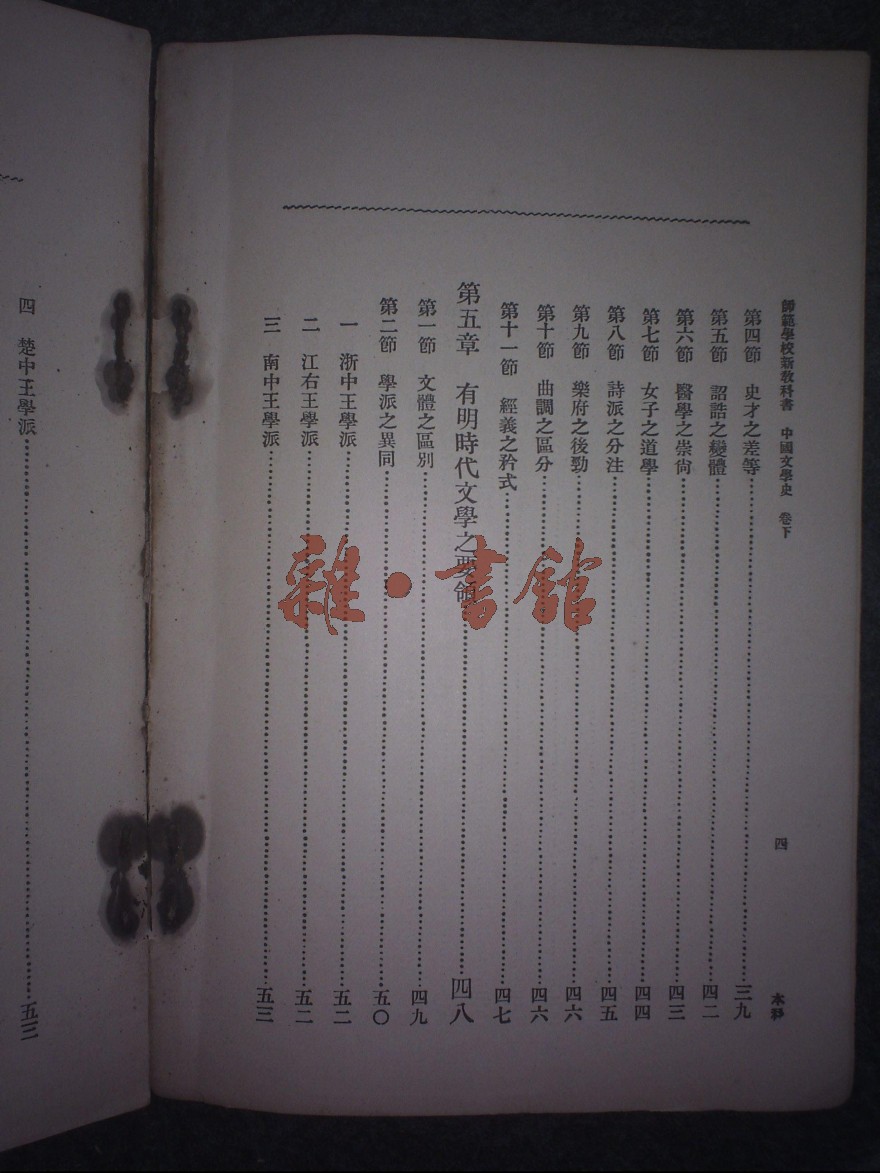 師範學校新敎科書　中國文學史　卷下　四　本科
第四節　史才之差等……三九
第五節　詔誥之變體……四二
第六節　醫學之崇尙……四三
第七節　女子之道學……四四
第八節　詩派之分注……四五
第九節　樂府之後勁……四六
第十節　曲調之區分……四六
第十一節　經義之矜式……四七
第五章　有明時代文學之要領……四八
第一節　文體之區別……四九
第二節　學派之異同……五〇
一　浙中王學派……五二
二　江右王學派……五二
三　南中王學派……五三
四　楚中王學派……五三
雜·書館